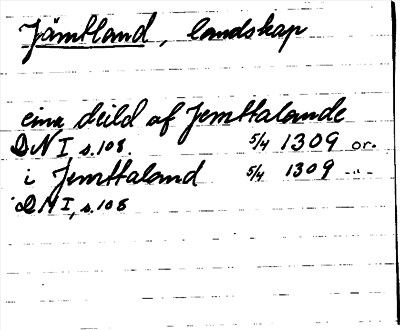 Jämtland, landskap
eina deild af Jemttalande
DN I, s.108. 5/4 1309 or.
i Jemttaland 5/4 1309 -"-
DN I, s.108